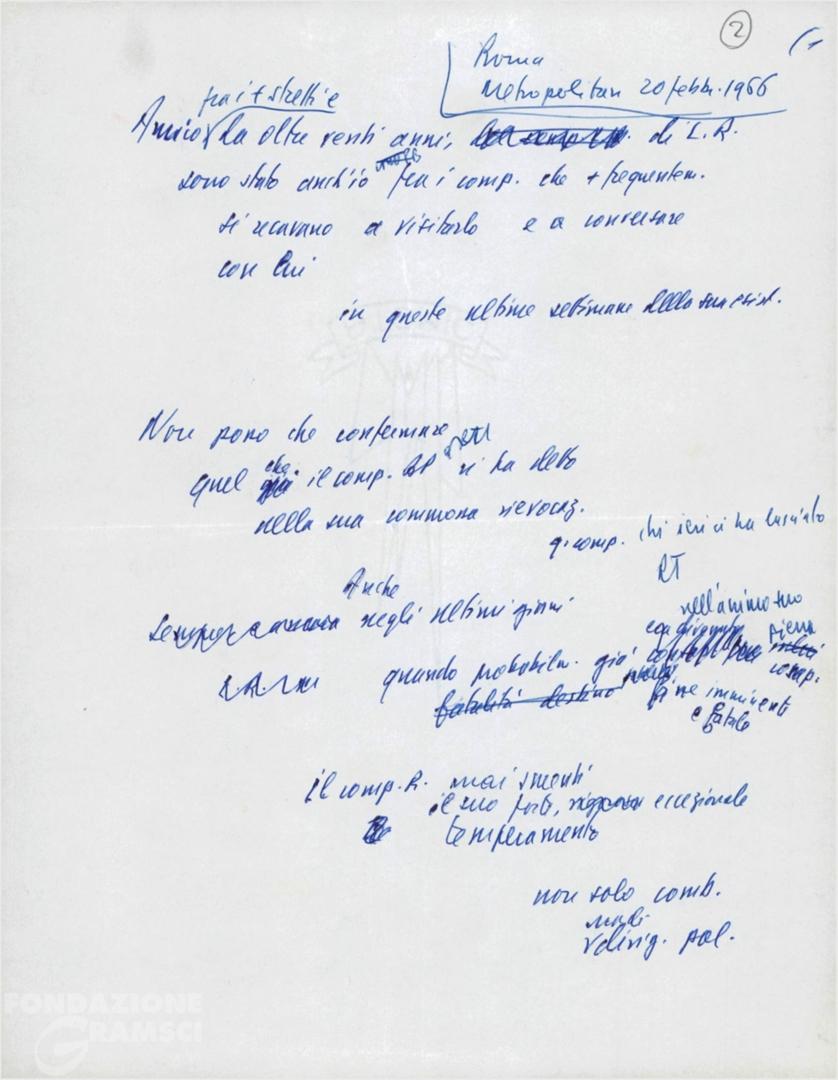 2
Roma
Metropolitan 20 febbr. 1966
fra i + stretti e
Amico da oltre venti anni, di L.R.
sono stato anch'io fra i comp. che + frequentem.
si recavano a visitarlo e a conversare
con lui
in queste ultime settimane della sua esist.
Non posso che confermare
quel che il comp. ci ha detto
nella sua commossa rievocaz.
q. comp. chi ieri ci ha lasciato
Anche
negli ultimi giorni
nell'animo suo
quando probabilm. già
fatalità destino
fine imminente
e fatale
il comp. R. mai smentì
il suo forte, eccezionale
temperamento
non solo comb.
dirig. pol.
FONDAZIONE
GRAMSCI